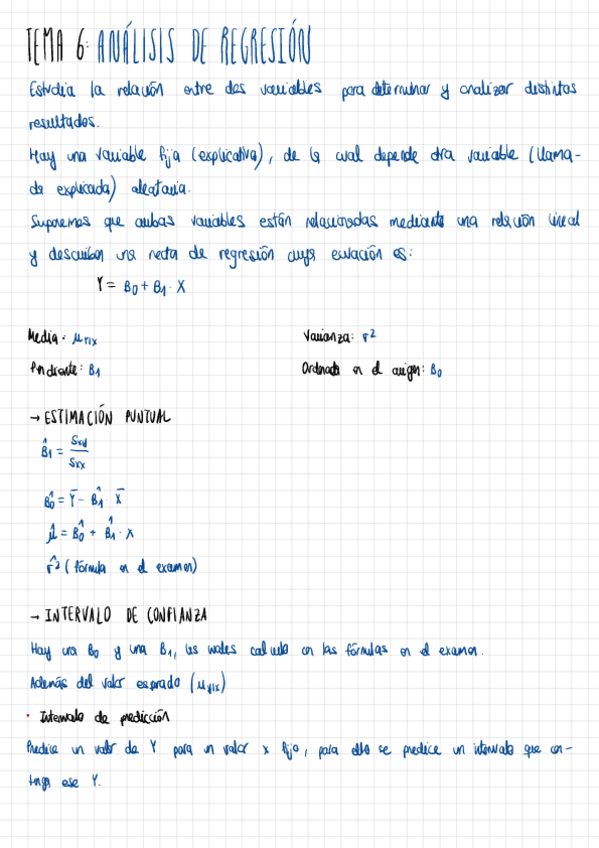 TEMA 6: ANÁLISIS DE REGRESIÓN
Estudia la relación entre dos variables para determinar y analizar distintos
resultados.
Hay una variable fija (explicativa), de la cual depende otra variable (llama-
da explicada) aleatoria.
Suponemos que ambas variables están relacionadas mediante una relación lineal
y describen una recta de regresión cuya ecuación es:
Y = B0 + B1 · X
Media: μY|X Varianza: σ²
Pendiente: B1 Ordenada en el origen: B0
→ ESTIMACIÓN PUNTUAL
B̂1 = Sxy / Sxx
B̂0 = Ȳ - B̂1 X̄
μ̂ = B̂0 + B̂1 · X
σ̂² (fórmula en el examen)
→ INTERVALO DE CONFIANZA
Hay una B0 y una B1, las cuales calculo con las fórmulas en el examen.
Además del valor esperado (μY|X)
• Intervalo de predicción
Predice un valor de Y para un valor x fijo, para ello se predice un intervalo que con-
tenga ese Y.